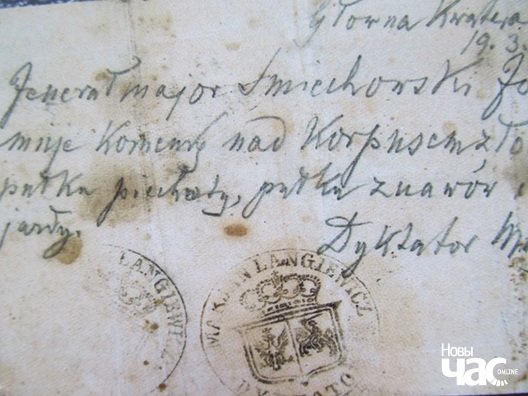 Główna Kwatera
19. 3.
Jenerał major Śmiechowski
muje Komendę nad Korpusem zło
pułku piechoty, pułku żuawów
jazdy.
Dyktator
LANGIEWICZ
MARIAN LANGIEWICZ
DYKTATO
Новы
Час
ONLINE